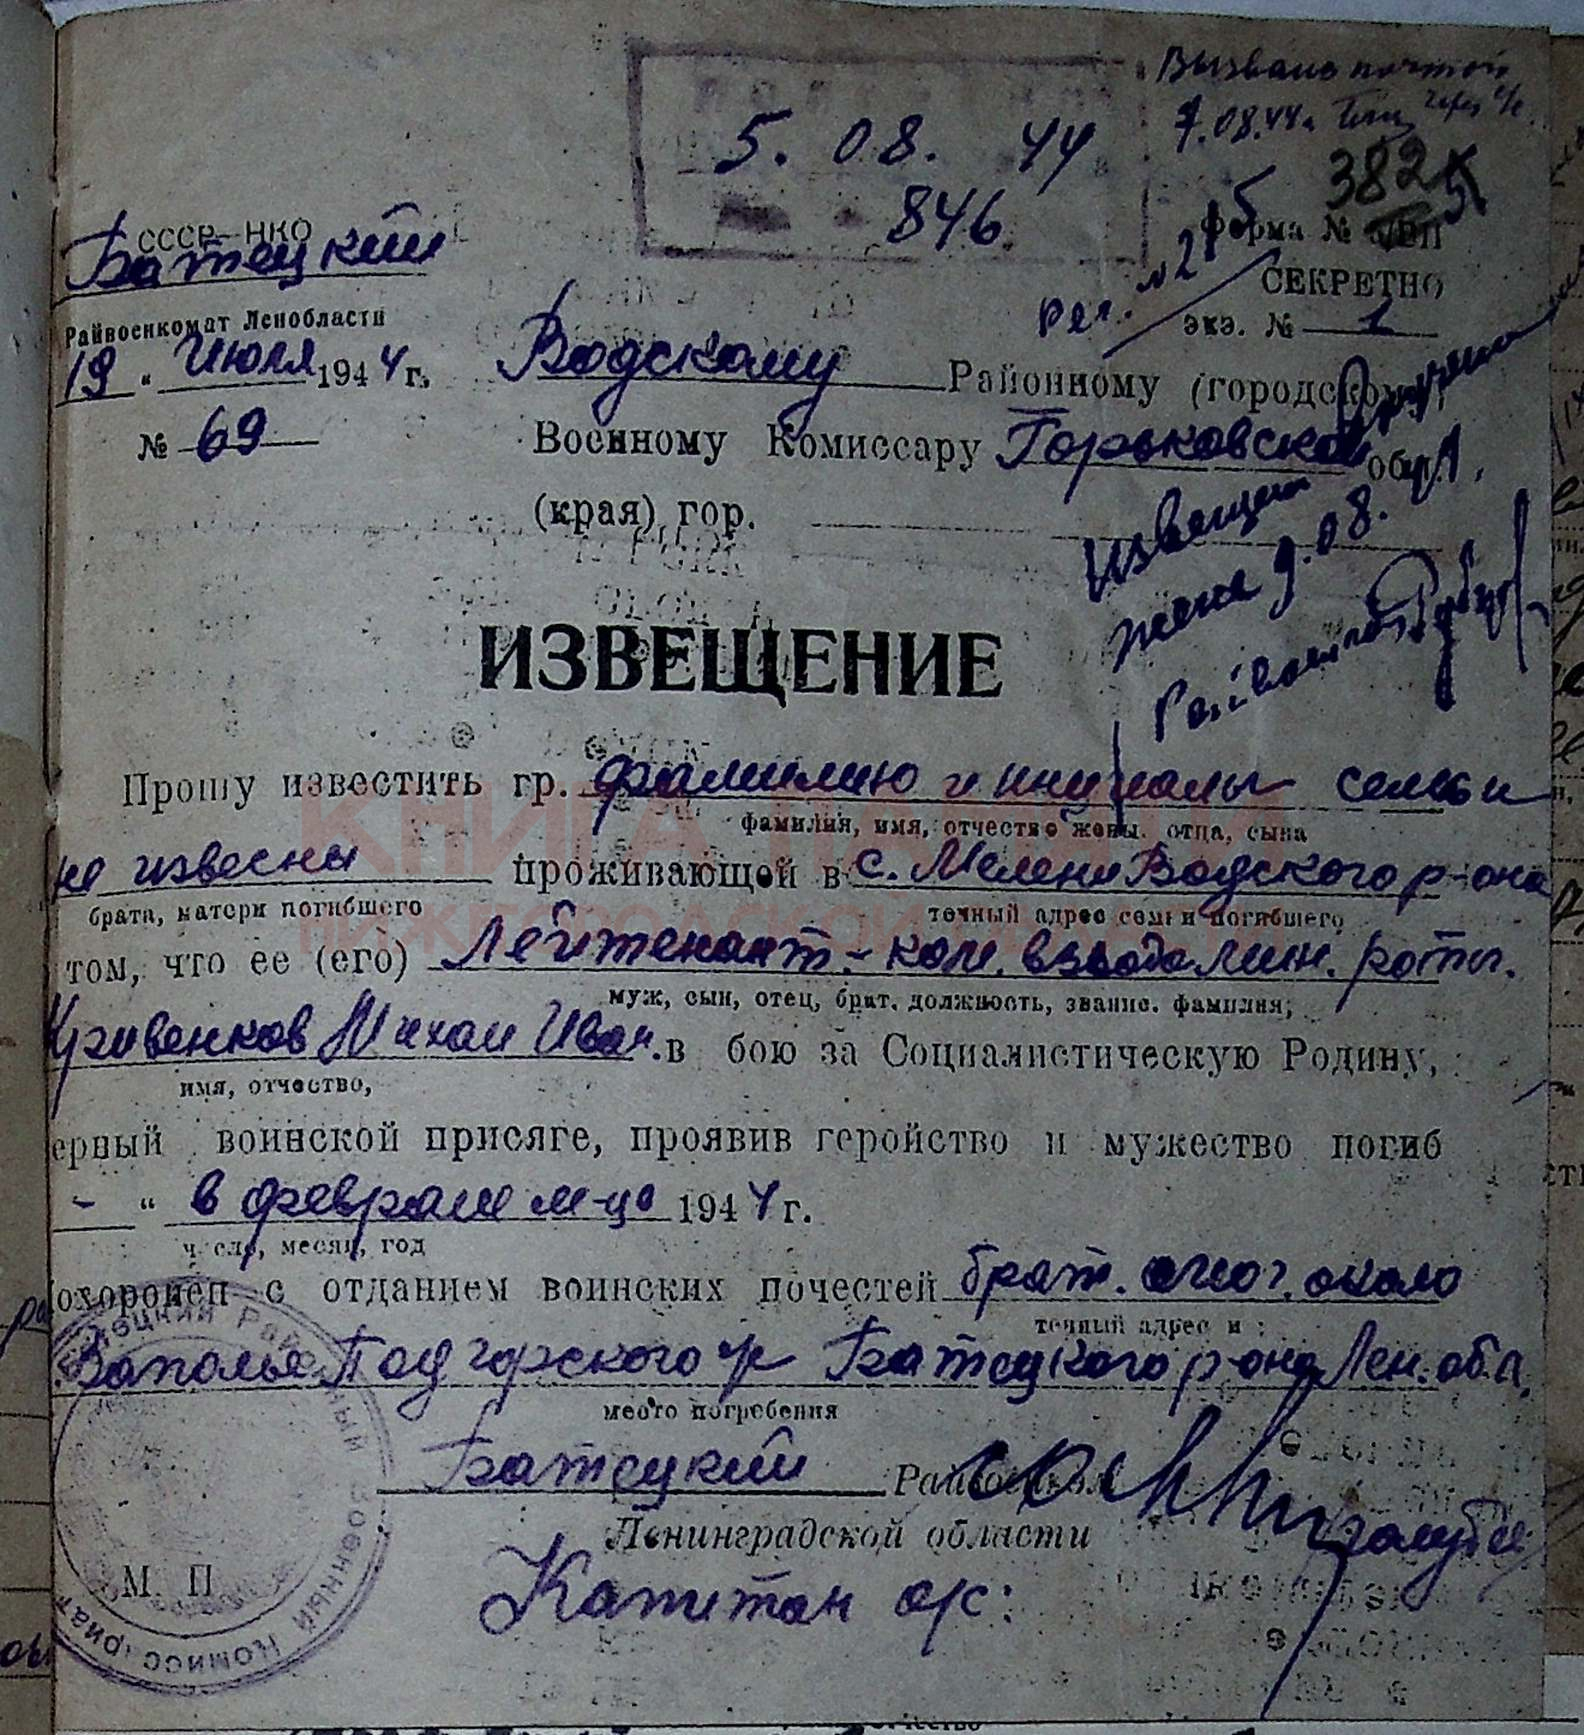 5. 08. 44
846
Вызвана почтой
7.08.44г.
382
СССР—НКО
Батецкий
Форма №
СЕКРЕТНО
Рег. №
экз. № 1
Райвоенкомат Ленобласти
19 " Июля 1944 г.
Водскому Районному (городском
№ 69
Военному Комиссару Горьковской обл.
(края) гор.
Извещение
вручено
жене 9.08.
Райвоенком
ИЗВЕЩЕНИЕ
Прошу известить гр. фамилию и инициалы семьи
фамилия, имя, отчество жены, отца, сына
не извесны проживающей в с. Мелени Водского р-она
брата, матери погибшего точный адрес семьи погибшего
том, что ее (его) Лейтенант - ком. взвода мин. роты.
муж, сын, отец, брат, должность, звание, фамилия;
Кривенков Михаи Иван. в бою за Социалистическую Родину,
имя, отчество,
ерный воинской присяге, проявив геройство и мужество погиб
- " в феврале м-це 1944 г.
число, месяц, год
охоронен с отданием воинских почестей брат. мог. около
точный адрес и
Заполье Подгорского с/с Батецкого р-она Лен. обл.
место погребения
Батецкий Райвоенком
Ленинградской области
Капитан а/с:
М. П
КНИГА ПАМЯТИ
НИЖЕГОРОДСКОЙ ОБЛАСТИ